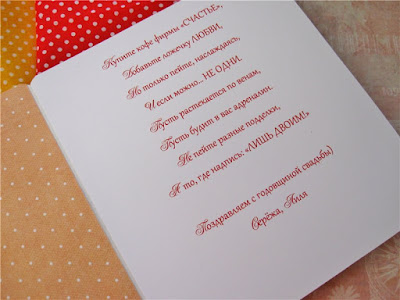 Купите кофе фирмы «СЧАСТЬЕ»,
Добавьте ложечку ЛЮБВИ,
Но только пейте, наслаждаясь,
И если можно... НЕ ОДНИ.
Пусть растекается по венам,
Пусть будит в вас адреналин.
Не пейте разные подделки,
А то, где надпись: «ЛИШЬ ДВОИМ!»
Поздравляем с годовщиной свадьбы)
Серёжа, Лиля